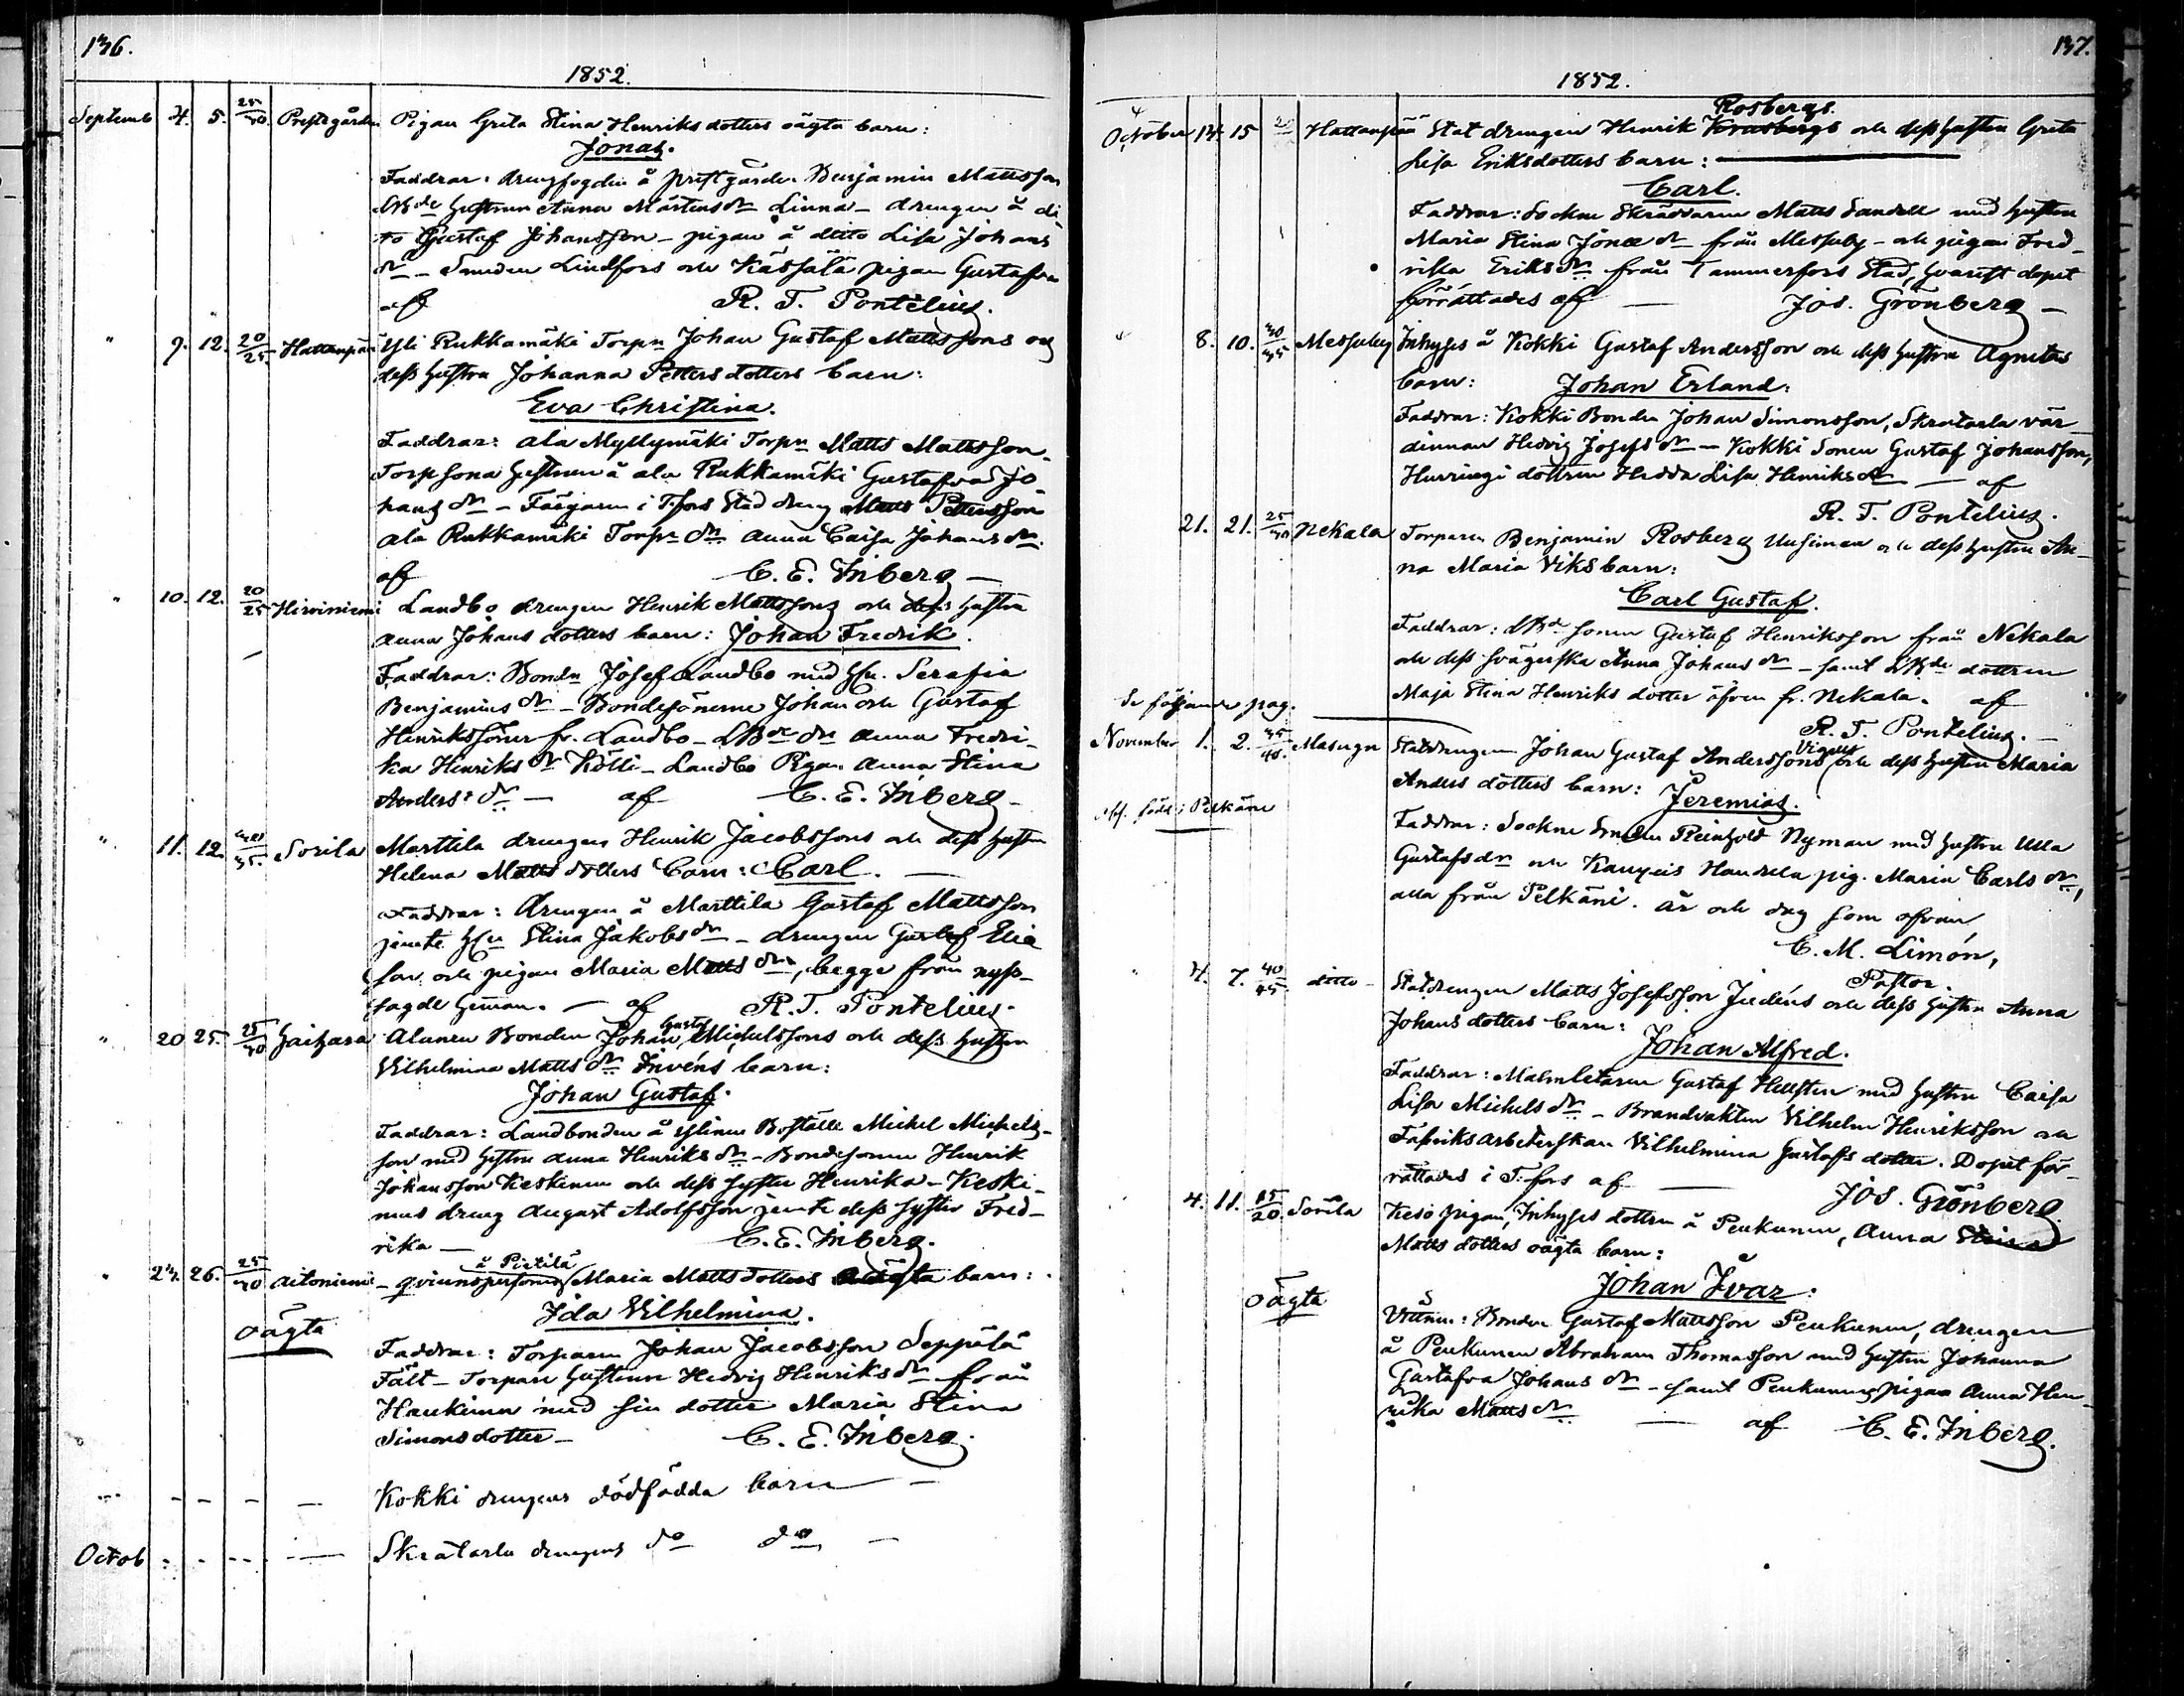 136.
1852.
Septemb 4. 5. 25/30 Prestgården Pigan Greta Stina Henriksdotters oägta barn:
Jonas.
Faddrar: drengfogden å prestgården Benjamin Mattsson
LBde hustrun Anna Mårtens dr Linna - drengen å di
to Gustaf Johansson - pigan å ditto Lisa Johans
dr - Smeden Lindfors och Kässälä pigan Gustafva
af R. T. Pontelius.
" 9. 12. 20/25 Hattanpää Yli Rukkamäki Torpn Johan Gustaf Mattssons och
dess hustru Johanna Petters dotters barn:
Eva Christina.
Faddrar: ala Myllymäki Torpn Matts Mattsson
Torpsona hustrun å ala Rukkamäki Gustafva Jo-
hans dr - Färgaren i T.fors Stad dreng Matts Pettersson
ala Rukkamäki Torpr dr Anna Caisa Johans dr
af C. E. Inberg -
" 10. 12. 20/25 Hirviniemi Landbo drengen Henrik Mattssons och dess hustru
Anna Johans dotters barn: Johan Fredrik.
Faddrar: Bonden Josef Landbo med hu. Serafia
Benjamins dr - Bondesönerne Johan och Gustaf
Henrikssöner fr. Landbo - LBde dr Anna Fredri-
ka Henriks dr Kölli - Landbo Pigan Anna Stina
Anders dr - af C. E. Inberg -
" 11. 12. 30/35. Sorila Marttila drengen Henrik Jacobssons och dess hustru
Helena Matts dotters barn: Carl. -
Faddrar: Drengen å Marttila Gustaf Mattsson
jemte hu Stina Jakobs dr - drengen Gustaf Elia
son och pigan Maria Matts dr, begge från nyss-
sagde heman. - af R. T. Pontelius.
" 20 25. 25/30 Haihara Alanen Bonden Johan Gustaf Michelssons och dess hustru
Vilhelmina Matts dr Invéns barn:
Johan Gustaf.
Faddrar: Landbonden å Ylinen Boställe Michel Michels-
son med hustru Anna Henriks dr - Bondesonen Henrik
Johansson Keskinen och dess syster Henrika - Keski-
nens dreng August Adolfsson jemte dess syster Fred-
rika - C. E. Inberg.
" 24. 26. 25/30 Aitoniemi - qvinnspersonens å Pietilä Maria Matts dotters oägta barn:
Ida Vilhelmina.
oägta
Faddrar: Torparen Johan Jacobsson Seppälä
Fält - Torpare hustrun Hedvig Henriks dr från
Haukinen med sin dotter Maria Stina
Simonsdotter - C. E. Inberg.
- - - - Kokki drengens dödfödda barn -
Octob - - - - Skratarla drengens do do -
137.
1852.
October 14. 15 Hattanpää Stat drengen Henrik Rosbergs och dess hustru Greta
Lisa Eriksdotters barn:
Carl.
Faddrar: Sockne Skräddaren Matts Sandell med hustru
Maria Stina Jonæ dr från Messuby - och pigan Fred-
rika Eriks dr från Tammerfors Stad, hvarest dopet
förrättades af - Jos. Grönberg -
" 8. 10. 30/35 Messuby Inhyses å Kokki Gustaf Andersson och dess hustru Agnetas
barn: Johan Erland:
Faddrar: Kokki Bonden Johan Simonsson, Skratarla vär-
dinnan Hedvig Josefs dr - Kokki Sonen Gustaf Johansson,
Hurringi dottren Hedda Lisa Henriks dr - af
R. T. Pontelius.
21. 21. 25/30 Nekala Torparen Benjamin Rosberg Uusiman och dess hustru An-
na Maria Viks barn:
Carl Gustaf.
Faddrar: LBd sonen Gustaf Henriksson från Nekala
och dess svägerska Anna Johans dr - samt LBde dottren
Maja Stina Henriks dotter äfven fr. Nekala. af
R. T. Pontelius. -
Se följande pag.
November 1. 2. 35/40. Masugn Statdrengen Johan Gustaf Anderssons Vigius och dess hustru Maria
Anders dotters barn: Jeremias.
föd i Pelkäne
Faddrar: Sockne Smeden Reinhold Nyman med hustru Ulla
Gustafsdr och Kangais Handela pig. Maria Carls dr,
alla från Pelkäne. År och dag som ofvan
C. M. Limón,
Pastor.
" 4. 7. 40/45 ditto - Statdrengen Matts Josefsson Jedéns och dess hustru Anna
Johans dotters barn:
Johan Alfred.
Faddrar: Malmletaren Gustaf Hellsten med hustru Caisa
Lisa Michels dr - Brandvakten Vilhelm Henriksson och
Fabriksarbeterskan Vilhelmina Gustafs dotter. Dopet för-
rättades i T.fors af - Jos. Grönberg
4. 11. 15/20. Sorila Keso pigan, Inhyses dottren å Penkunen, Anna Stina
Matts dotters oägta barn:
Johan Ivar.
oägta
Vittnen: Bonden Gustaf Mattsson Penkunen, drengen
å Penkunen Abraham Thomasson med hustru Johanna
Gustafva Johans dr - samt Penkunens pigan Anna Hen-
rika Matts dr - af C. E. Inberg.